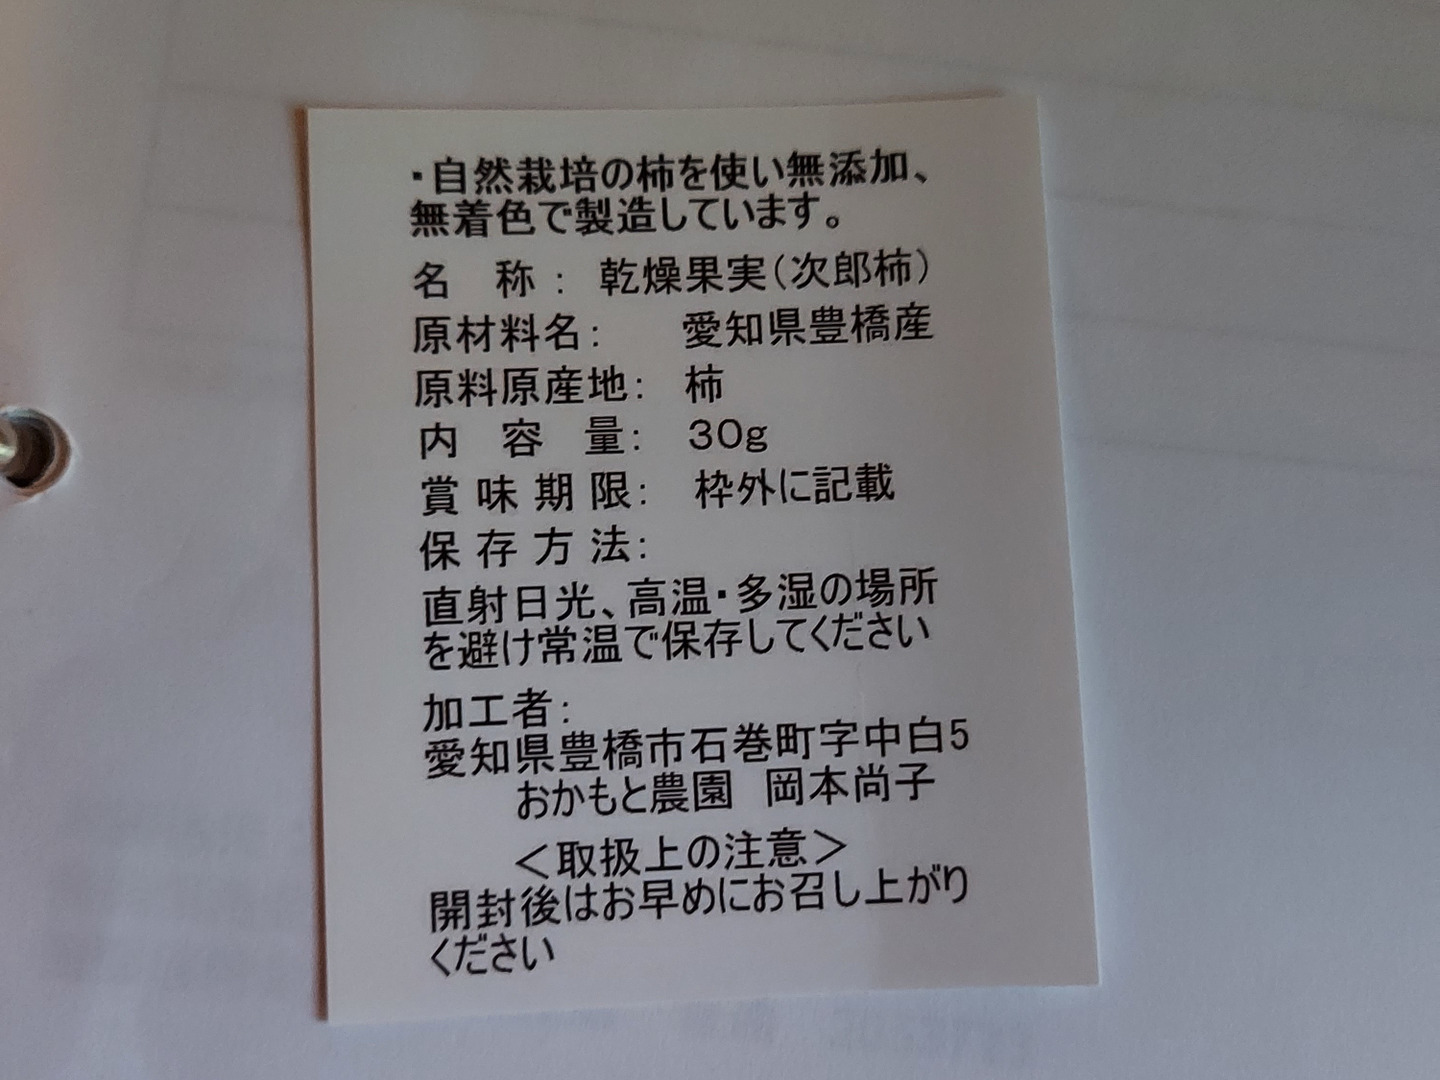 ・自然栽培の柿を使い無添加、
無着色で製造しています。
名　称： 乾燥果実（次郎柿）
原材料名：　愛知県豊橋産
原料原産地： 柿
内　容　量： 30g
賞 味 期 限： 枠外に記載
保 存 方 法：
直射日光、高温・多湿の場所
を避け常温で保存してください
加工者：
愛知県豊橋市石巻町字中白5
おかもと農園　岡本尚子
＜取扱上の注意＞
開封後はお早めにお召し上がり
ください